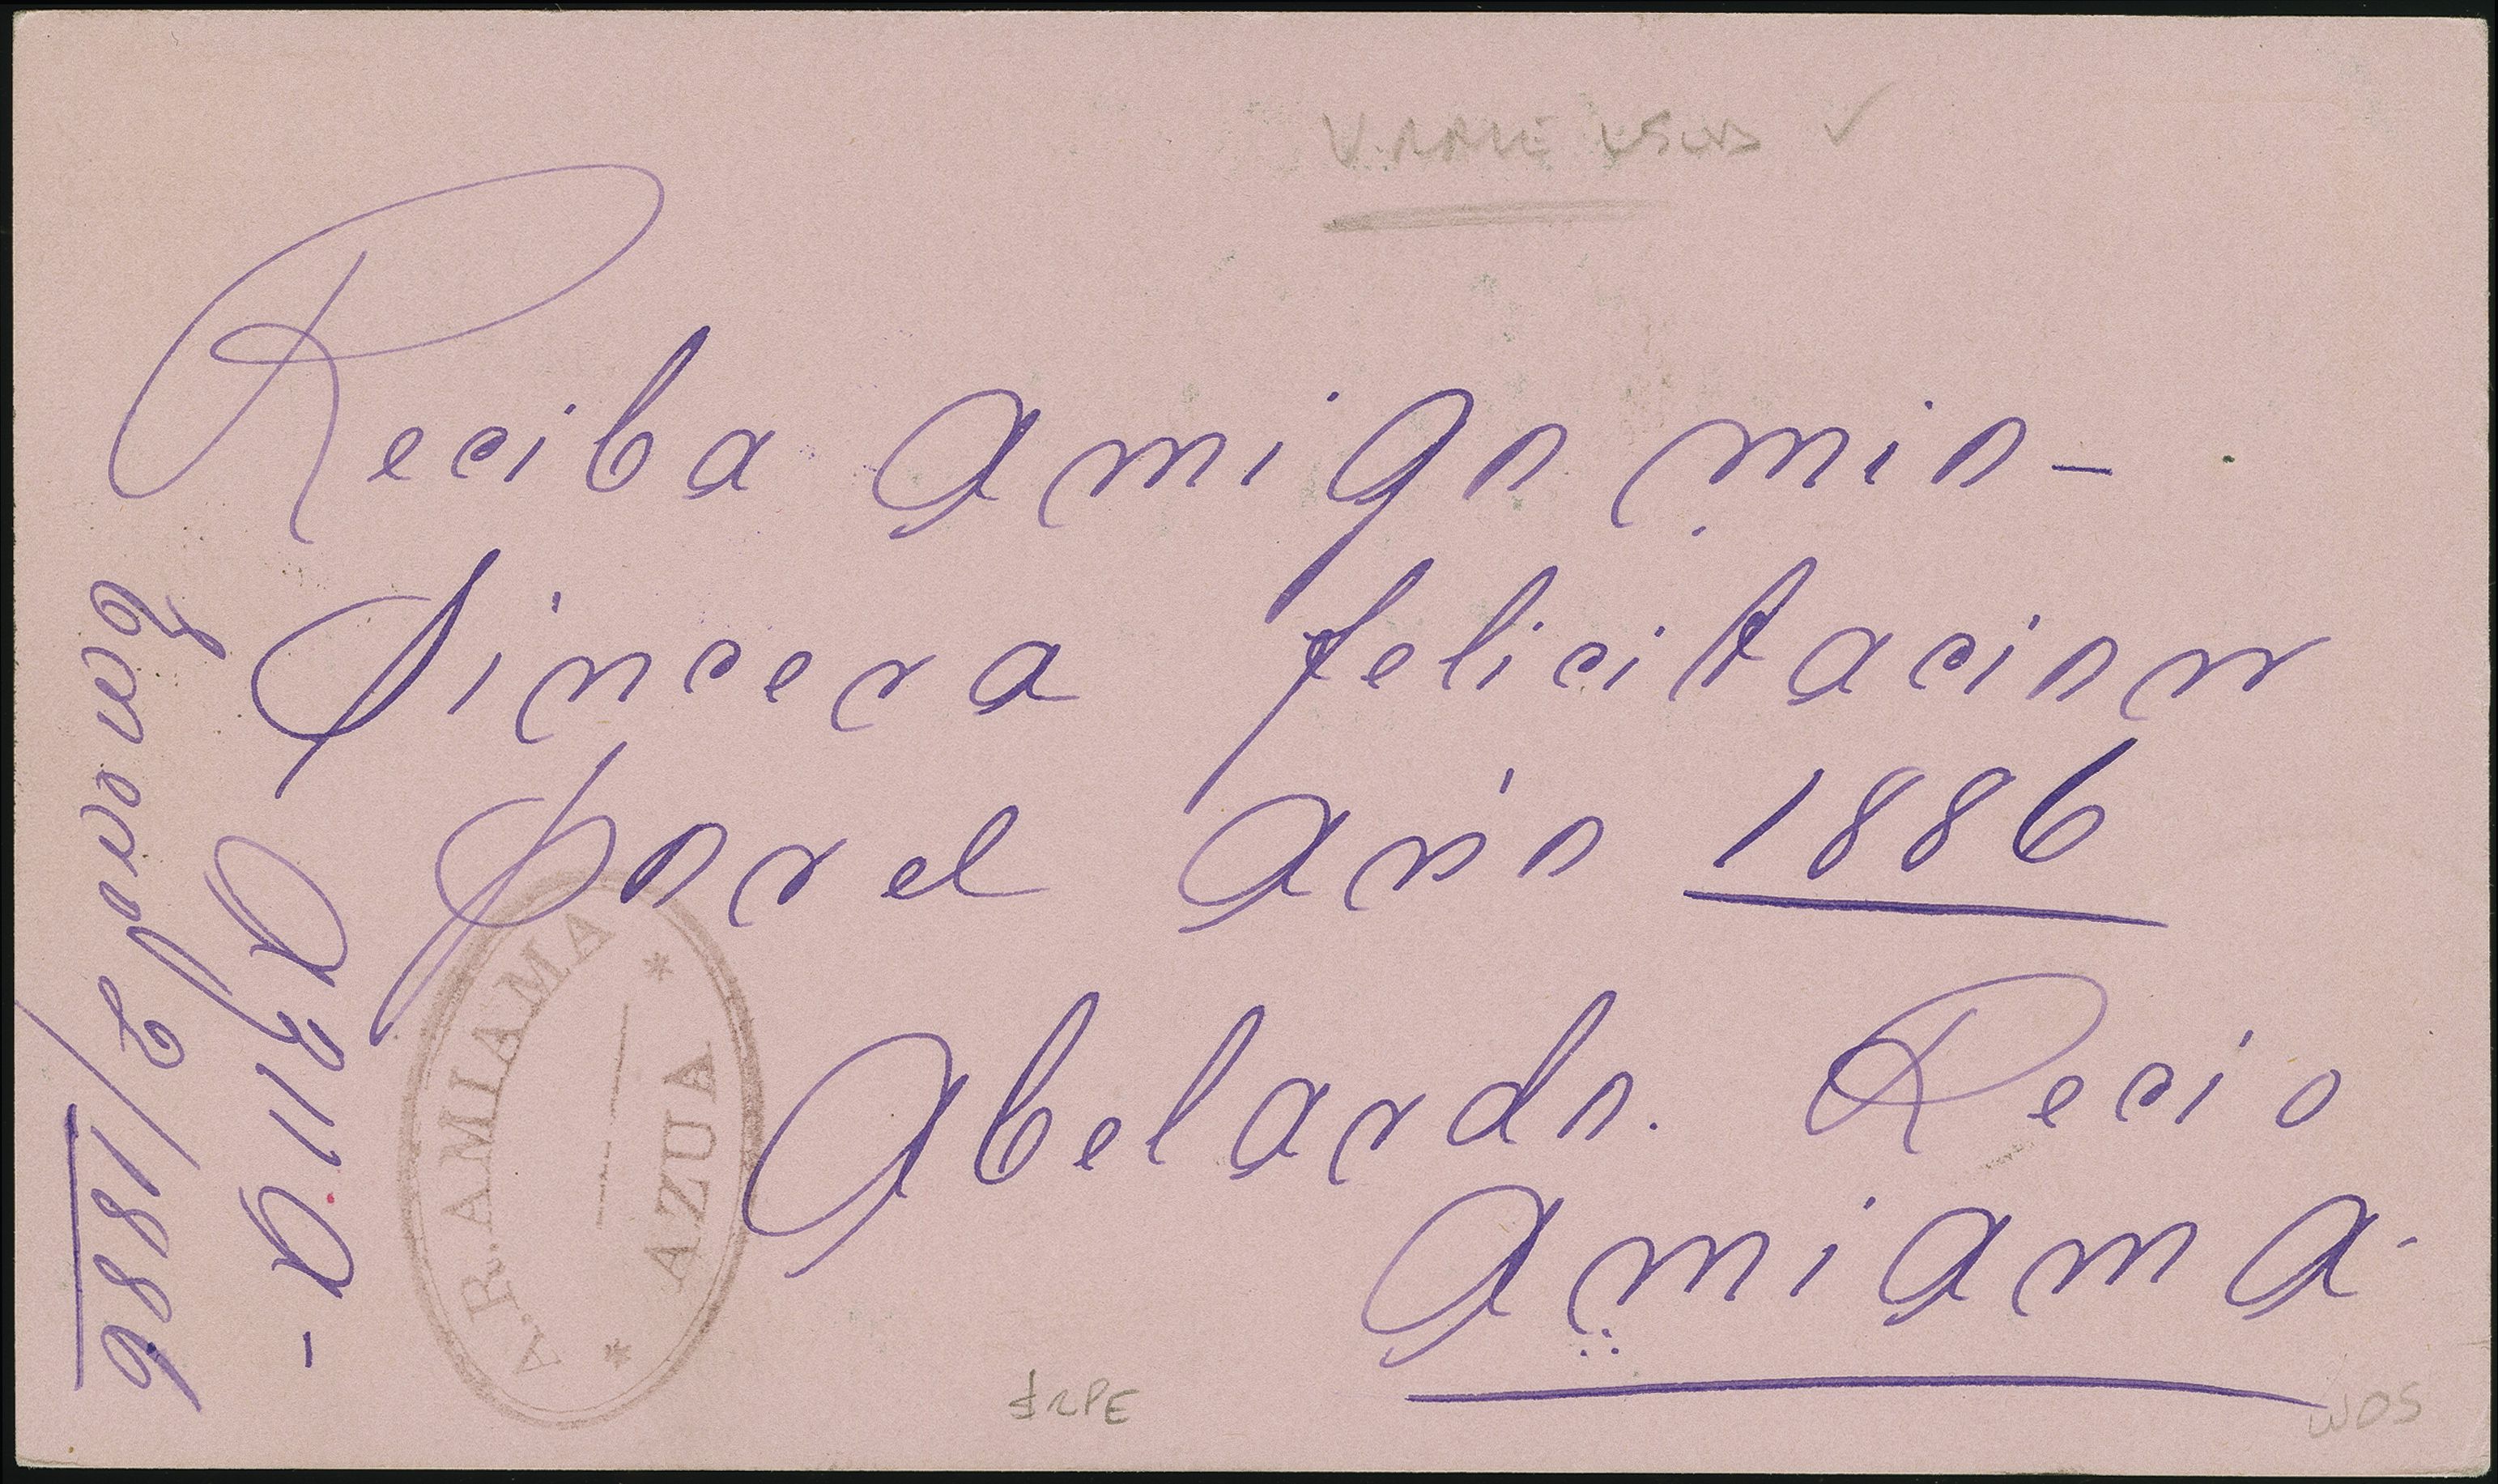 V. RARE USED ✓
Reciba Amigo mio-
Sincera felicitacion
por el Año 1886
Abelardo. Recio
Amiama.
Azua -
Enero /1886
A.R.AMIAMA
* AZUA *
WOS